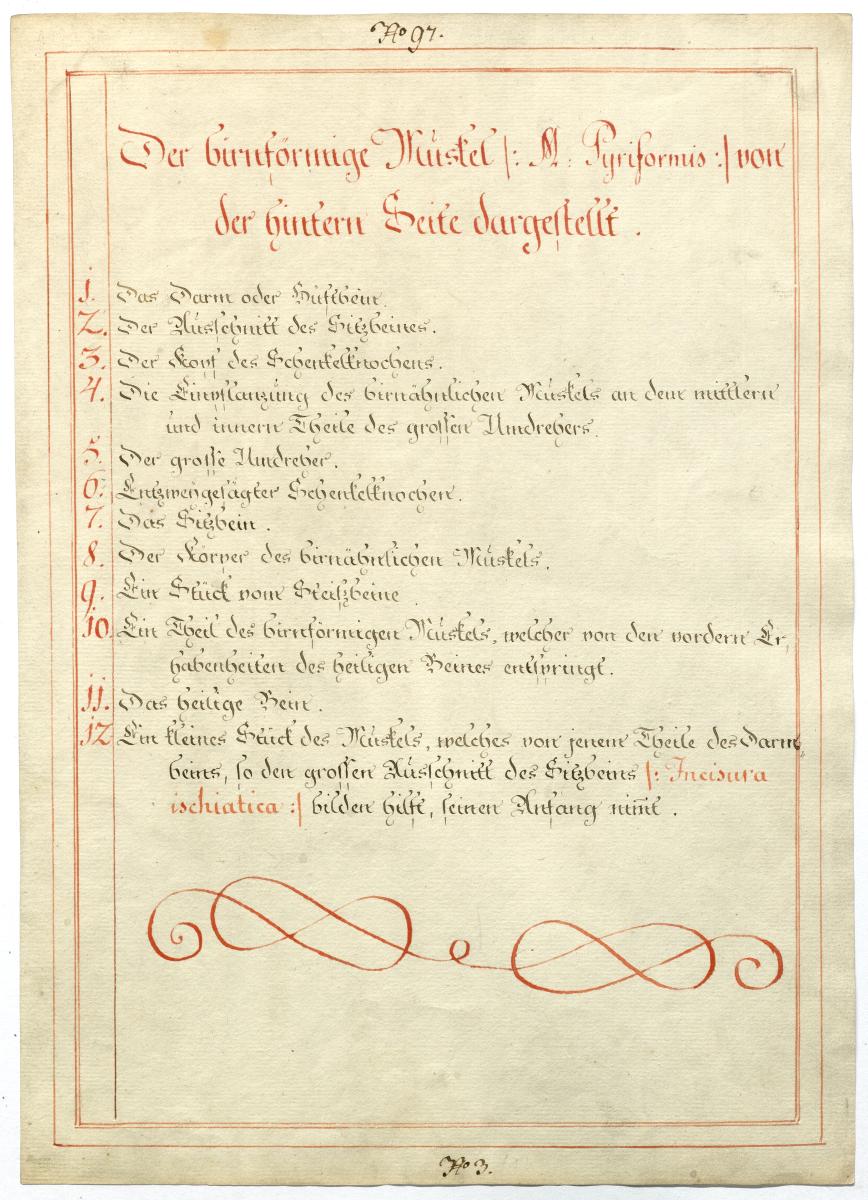 No 97.
Der birnförmige Muskel |: M: Pyriformis :| von
der hintern Seite dargestellt.
1. Das Darm oder Hüftbein.
2. Der Ausschnitt des Sitzbeines.
3. Der Kopf des Schenkelknochens.
4. Die Einpflanzung des birnähnlichen Muskels an dem mittlern
und innern Theile des grossen Umdrehers.
5. Der grosse Umdreher.
6. Entzweygesägter Schenkelknochen.
7. Das Sitzbein.
8. Der Körper des birnähnlichen Muskels.
9. Ein Stück vom Steißbeine
10. Ein Theil des birnförmigen Muskels, welcher von den vordern Er-
habenheiten des heiligen Beines entspringt.
11. Das heilige Bein.
12 Ein kleines Stück des Muskels, welches von jenem Theile des Darm-
beins, so den grossen Ausschnitt des Sitzbeins |: Incisura
ischiatica :| bilden hilft, seinen Anfang nim̄t.
No 3.